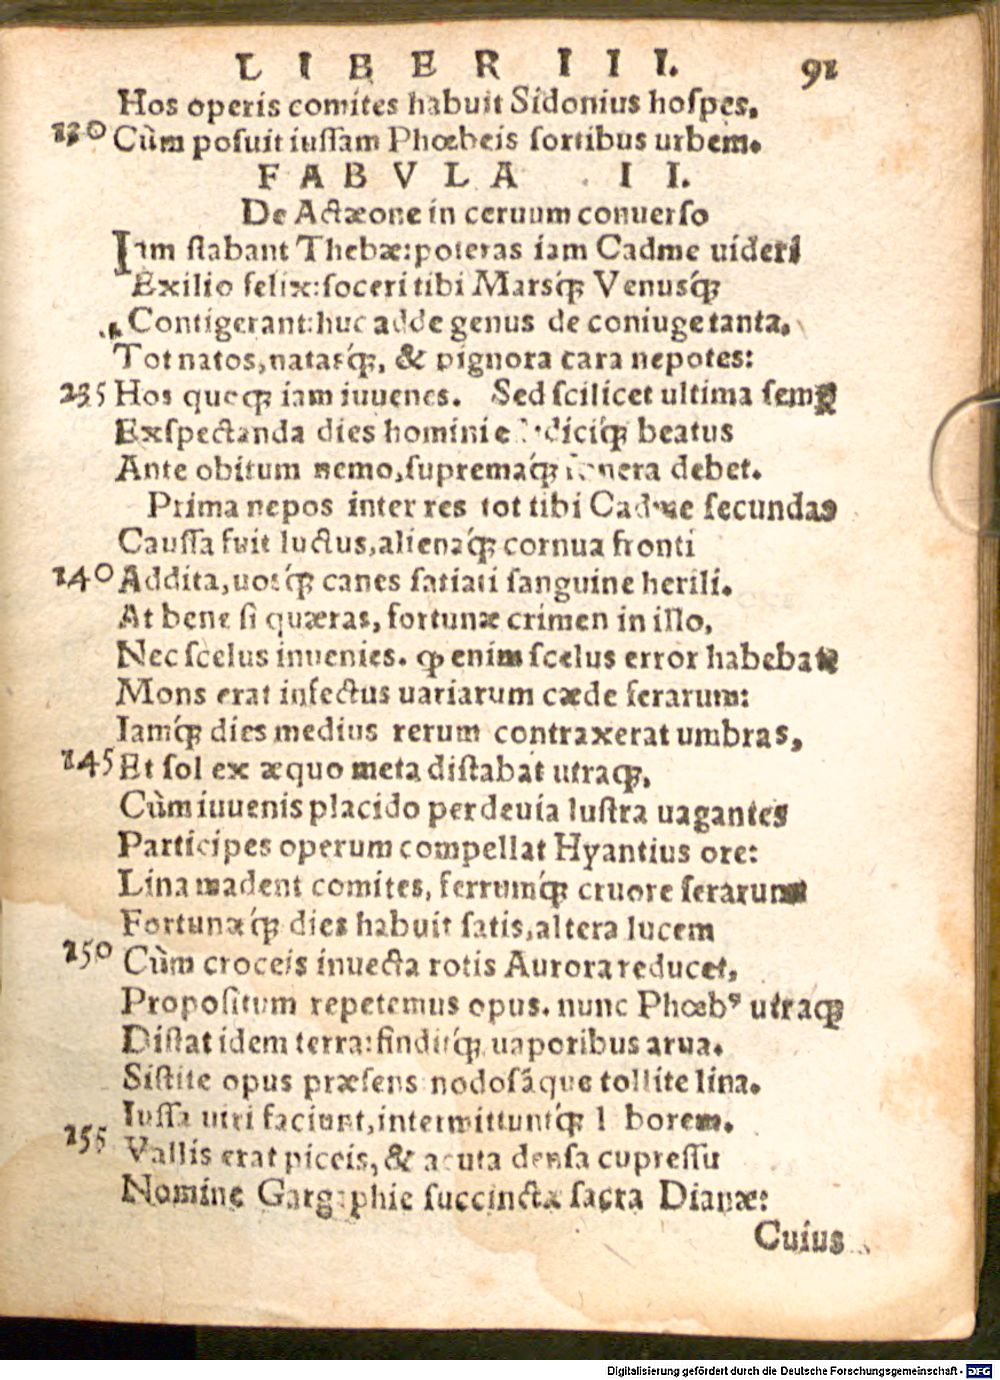 LIBER III. 91
Hos operis comites habuit Sidonius hoſpes,
230 Cùm poſuit iuſſam Phœbeis ſortibus urbem.
FABVLA II.
De Actæone in ceruum conuerſo
Iam ſtabant Thebæ: poteras iam Cadme uideri
Exilio felix: ſoceri tibi Marsq́ꝫ Venusq́ꝫ
Contigerant: huc adde genus de coniuge tanta,
Tot natos, natasq́ꝫ, & pignora cara nepotes:
235 Hos quoqꝫ iam iuuenes. Sed ſcilicet ultima ſemꝑ
Exſpectanda dies homini e diciq́ꝫ beatus
Ante obitum nemo, ſupremaq́ꝫ funera debet.
Prima nepos inter res tot tibi Cadme ſecundas
Cauſſa fuit luctus, alienaq́ꝫ cornua fronti
240 Addita, uosq́ꝫ canes ſatiati ſanguine herili.
At bene ſi quæras, fortunæ crimen in illo,
Nec ſcelus inuenies. ꝙ enim ſcelus error habebat
Mons erat infectus uariarum cæde ferarum:
Iamq́ꝫ dies medius rerum contraxerat umbras,
245 Et ſol ex æquo meta diſtabat utraqꝫ,
Cùm iuuenis placido per deuia luſtra uagantes
Participes operum compellat Hyantius ore:
Lina madent comites, ferrumq́ꝫ cruore ferarum
Fortunaq́ꝫ dies habuit ſatis, altera lucem
250 Cùm croceis inuecta rotis Aurora reducet,
Propoſitum repetemus opus. nunc Phœbꝰ utraqꝫ
Diſtat idem terra: finditq́ꝫ uaporibus arua.
Siſtite opus præſens nodoſáque tollite lina.
Iuſſa uiri faciunt, intermittuntq́ꝫ l borem.
255 Vallis erat piceis, & acuta denſa cupreſſu
Nomine Gargaphie ſuccinctæ ſacra Dianæ:
Cuius
Digitalisierung gefördert durch die Deutsche Forschungsgemeinschaft - DFG